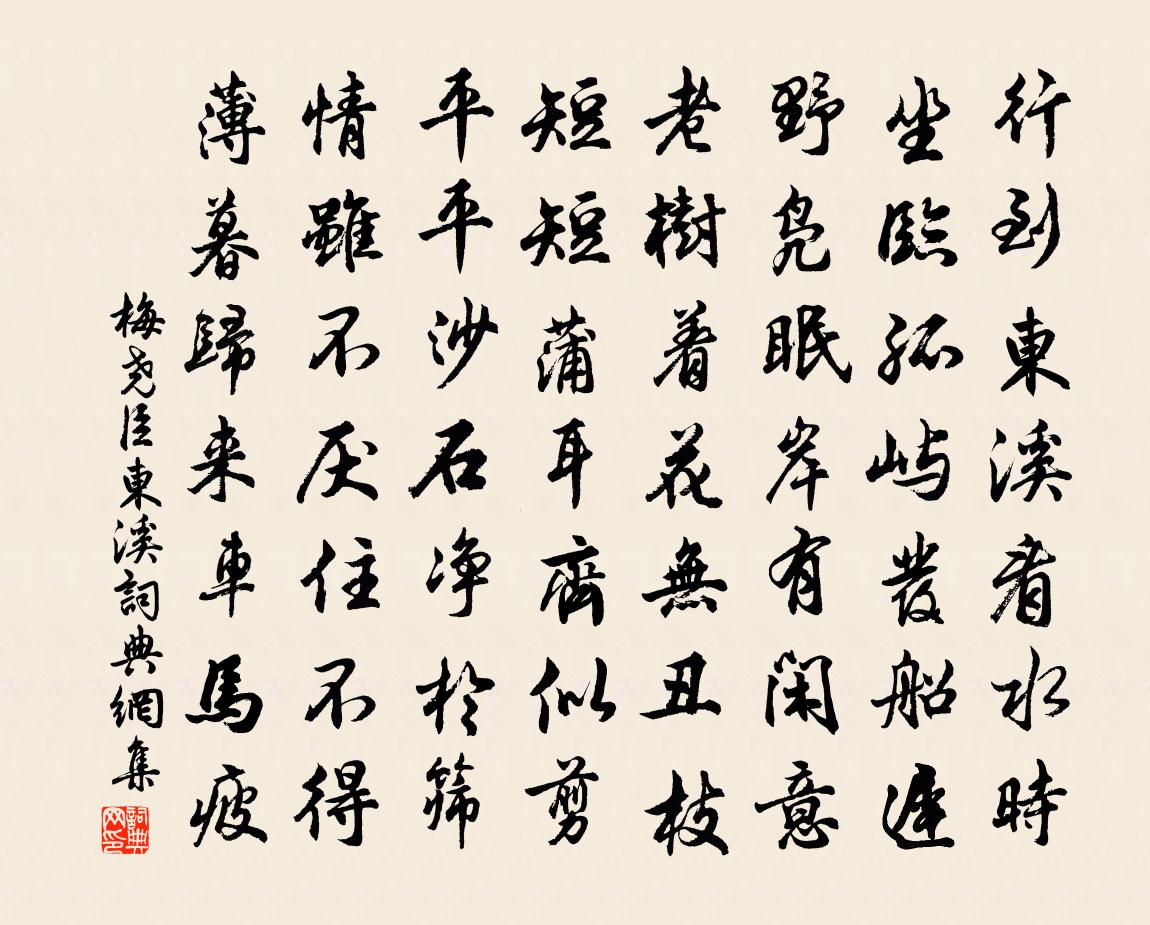 行到東溪看水時
坐臨孤嶼發船遲
野凫眠岸有閑意
老樹着花無丑枝
短短蒲耳齊似剪
平平沙石净於篩
情雖不厌住不得
薄暮歸来車馬疲
梅尧臣東溪詞典網集
詞典